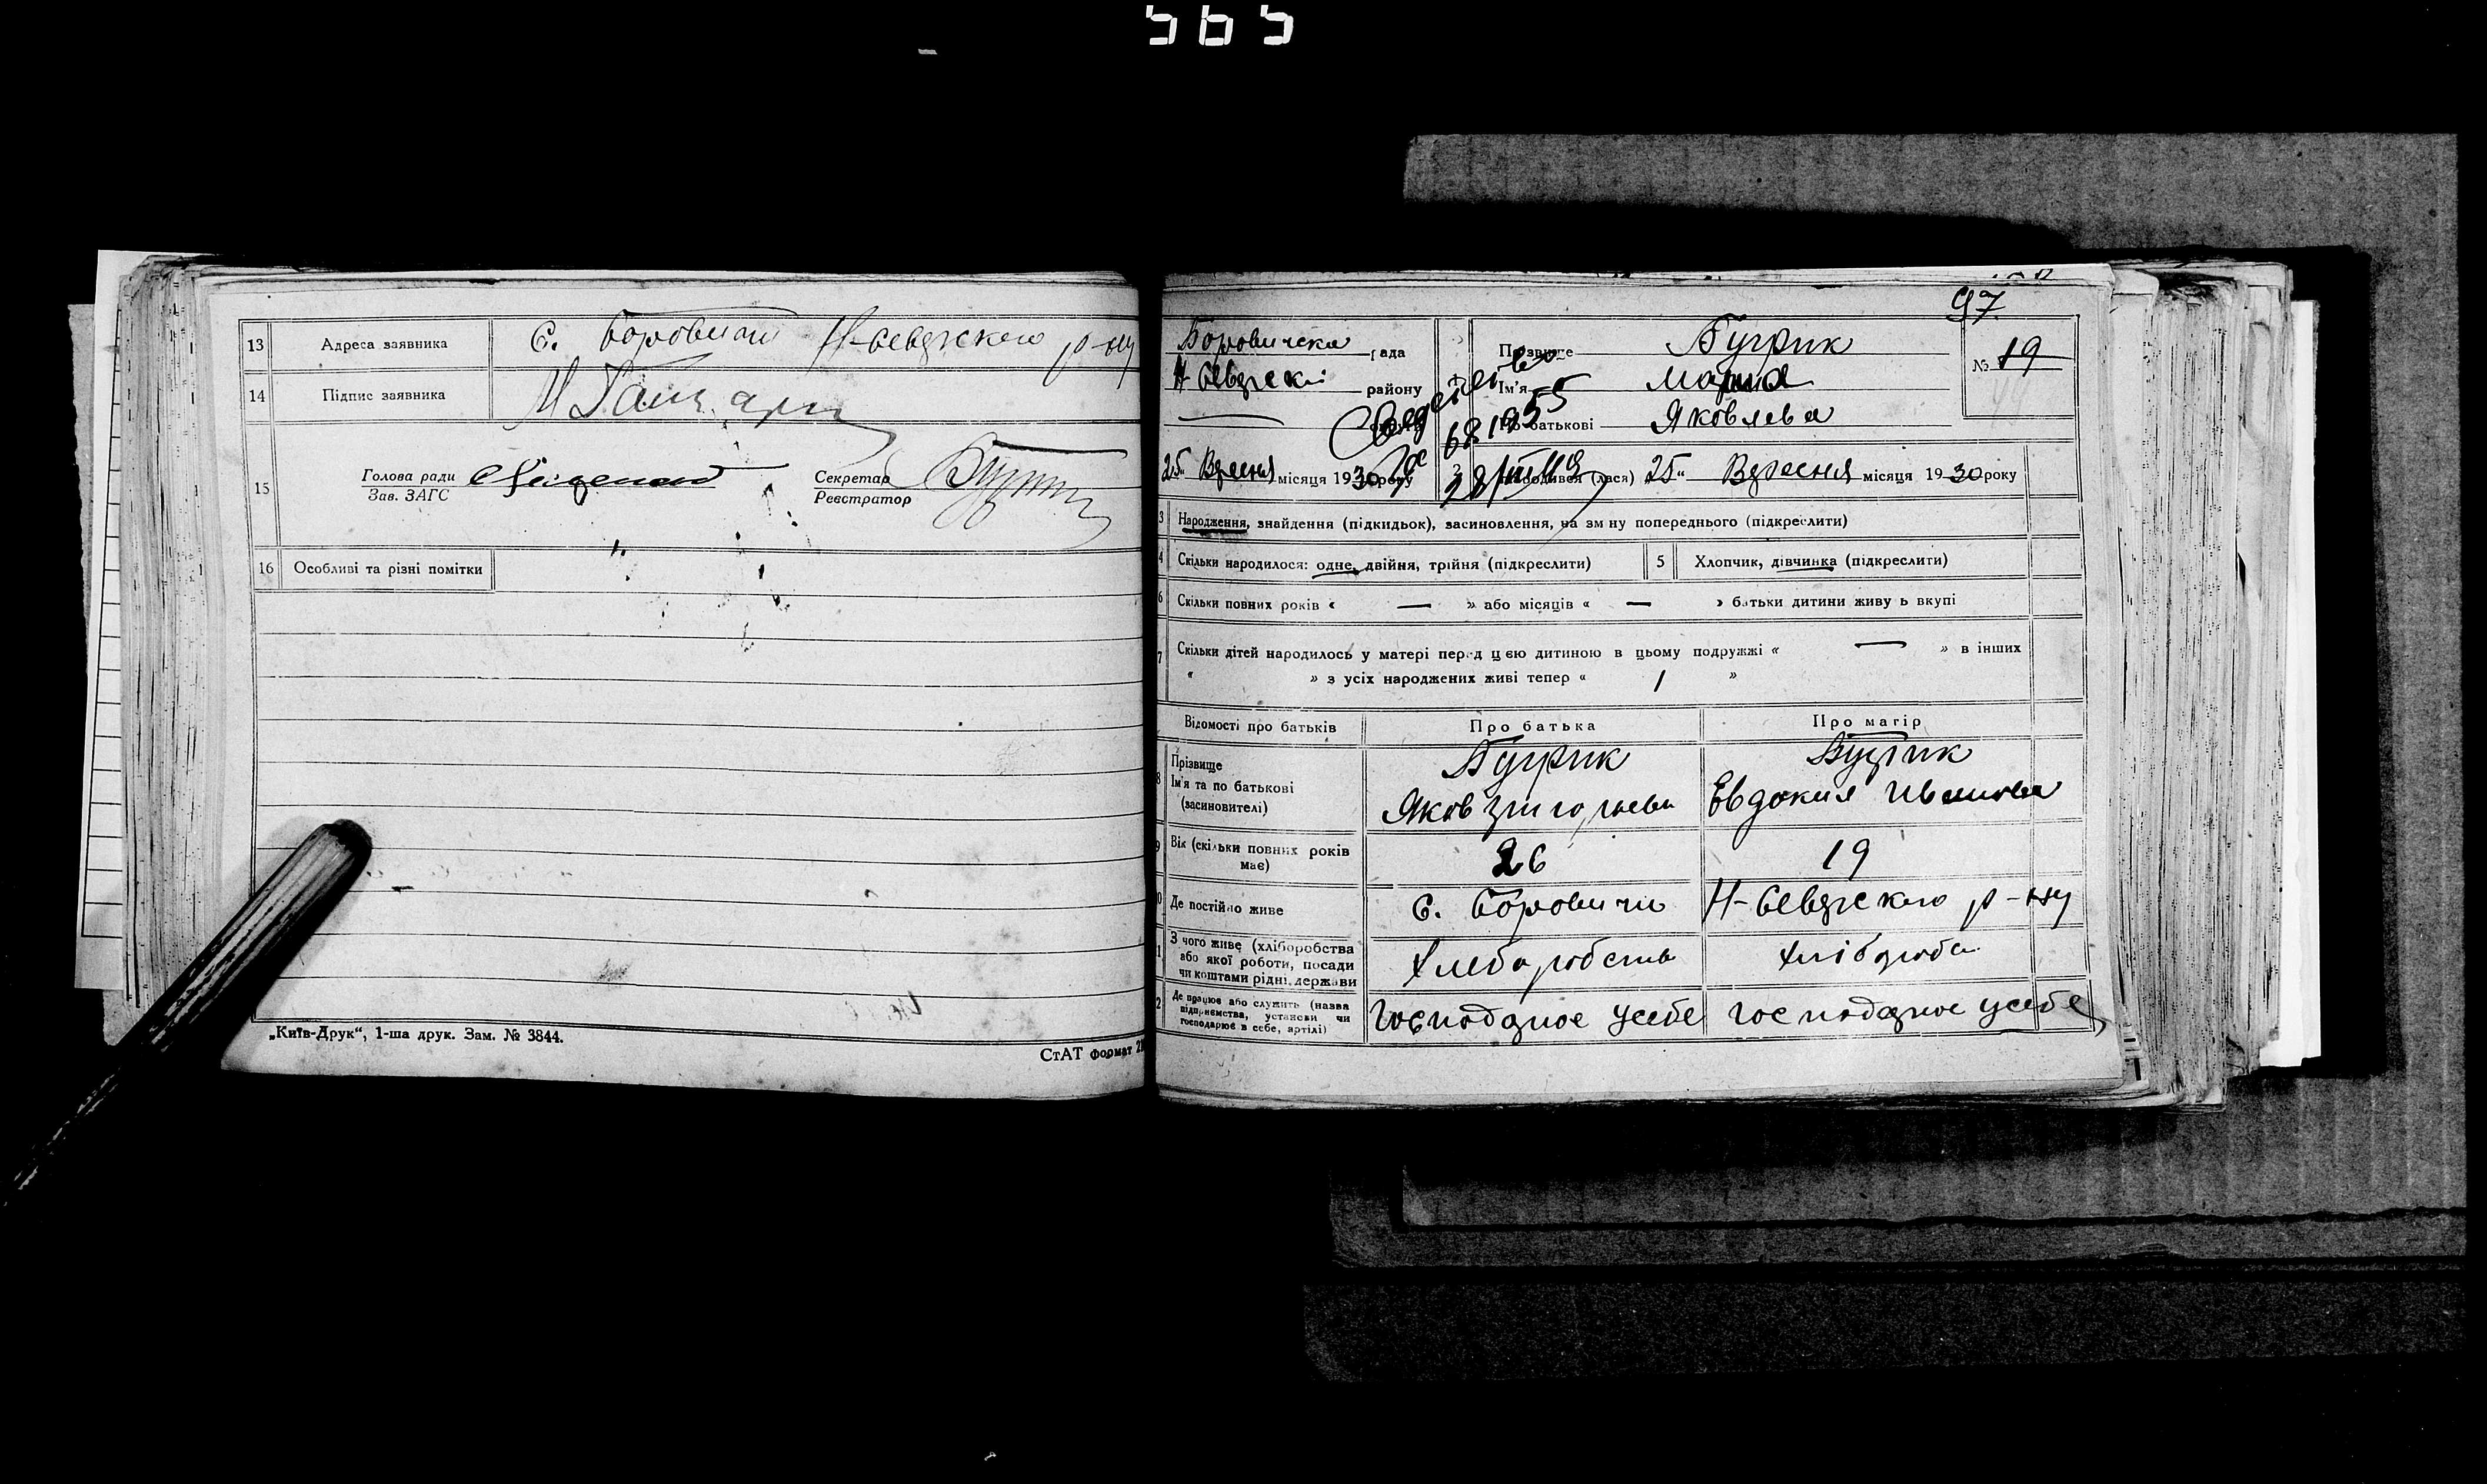 565
13 Адреса заявника с. Боровичи Н-Сіверского р-ну
14 Підпис заявника
15 Голова ради
Зав. ЗАГС
Секретар
Реєстратор
16 Особливі та різні помітки
„Київ-Друк“, 1-ша друк. Зам. № 3844.
СтАТ формат
97
Боровичска рада
Н-Сіверскі району
Прізвище Бугрик
Ім'я Мария
По батькові Яковлева
№ 19
25 Вересня місяця 1930 року
народився (лася) 25 Вересня місяця 1930 року
3 Народження, знайдення (підкидьок), засиновлення, на зміну попереднього (підкреслити)
4 Скільки народилося: одне, двійня, трійня (підкреслити)
5 Хлопчик, дівчинка (підкреслити)
6 Скільки повних років « — » або місяців « — » батьки дитини живуть вкупі
7 Скільки дітей народилось у матері перед цією дитиною в цьому подружжі « — » в інших
« » з усіх народжених живі тепер « 1 »
Відомості про батьків Про батька Про матір
8 Прізвище
Ім'я та по батькові
(засиновителі)
Бугрик
Яков
Бугрик
Евдокия Иванова
9 Вік (скільки повних років
має)
26 19
10 Де постійно живе с. Боровичи Н-Сіверского р-ну
11 З чого живе (хліборобства
або якої роботи, посади
чи коштами рідні, держави
Хлеборобств
12 Де працює або служить (назва
підприємства, установи чи
господарює в себе, артілі)
Господарює усебе господарює усебе